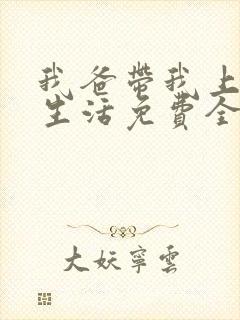 我爸带我上
生活免費全
大妖寧雲